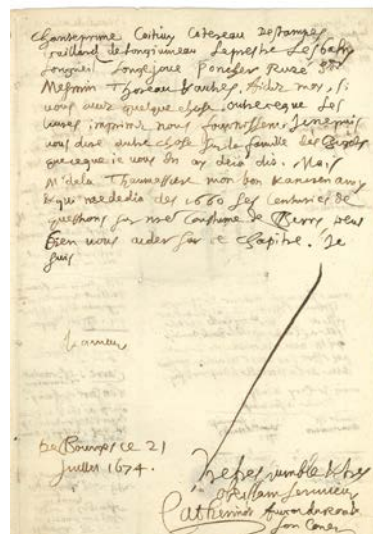 Chanteprime Coetivy Cotereau Destampes
Gaillard de Longjumeau Leprestre Lesbahy
Longueil Longejoue Poncher Ruzé St
Mesmin Thoreau & autres, Aidez moy, si
vous avez quelque chose, outre ce que les
livres imprimez nous fournissent. Je ne puis
vous dire autre chose sur la famille des
que ce que je vous en ay deia dit. Mais
Mr de la Thaumassiere mon bon & ancien amy
& qui me dedia des 1660 ses Centuries de
questions sur nostre Coustume de Berry peut
bien vous aider sur ce chapitre. Je
suis
De Bourges ce 21
Juillet 1674.
Vostre tres humble & tres
obeissant serviteur
Catherinot